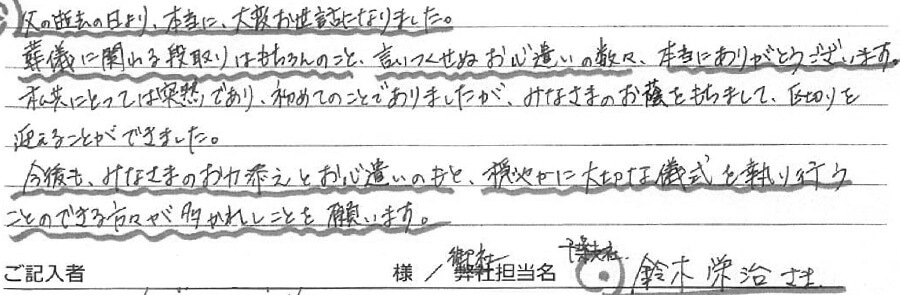 父の逝去の日より、本当に、大変お世話になりました。
葬儀に関わる段取りはもちろんのこと、言いつくせぬお心遣いの数々、本当にありがとうございます。
私共にとっては突然であり、初めてのことでありましたが、みなさまのお蔭をもちまして、区切りを
迎えることができました。
今後も、みなさまのお力添えとお心遣いのもと、穏やかに大切な儀式を執り行う
ことのできる方々が多かれしことを願います。
ご記入者 様 / 御社 弊社担当名 鈴木栄治さま